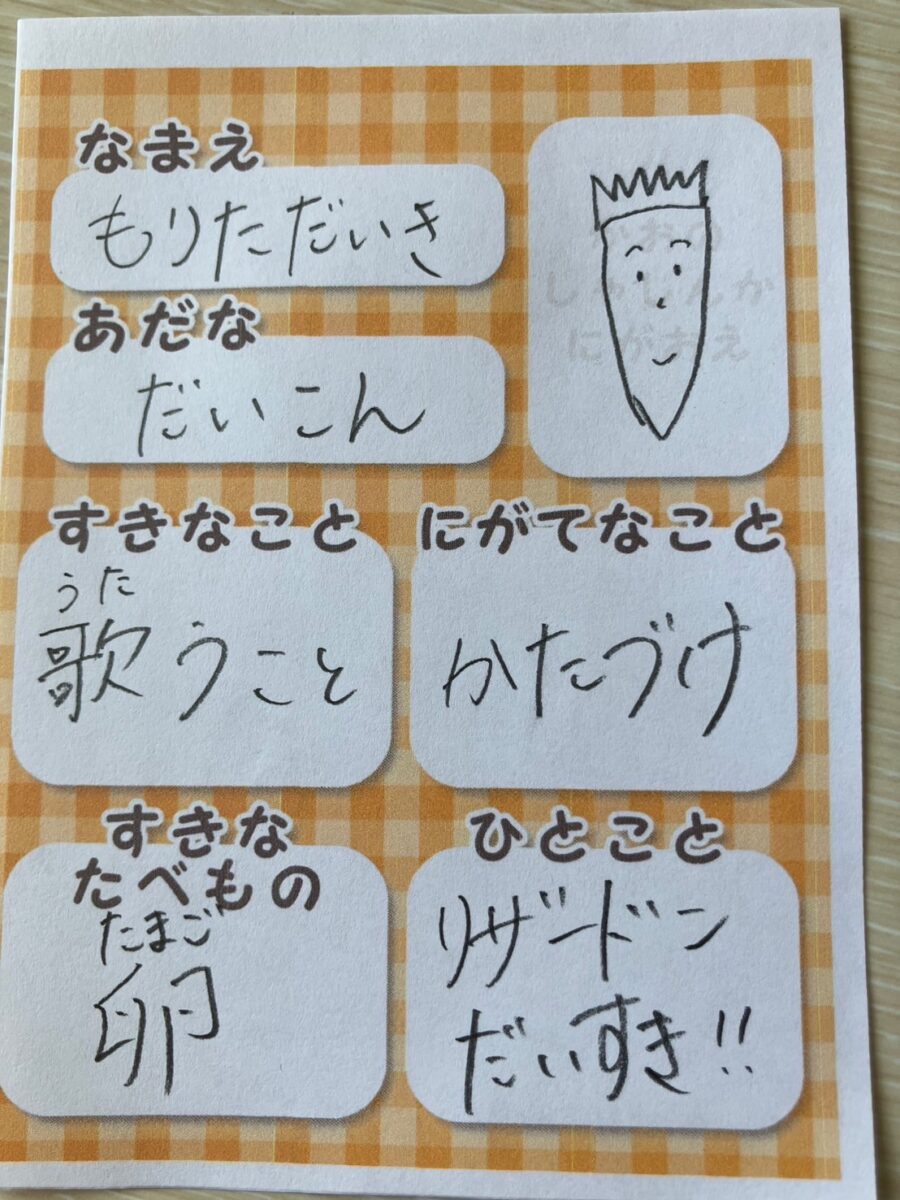 なまえ
もりただいき
かおの
しゃしんか
にがおえ
あだな
だいこん
すきなこと
うた
歌うこと
にがてなこと
かたづけ
すきな
たべもの
たまご
卵
ひとこと
リザードン
だいすき!!